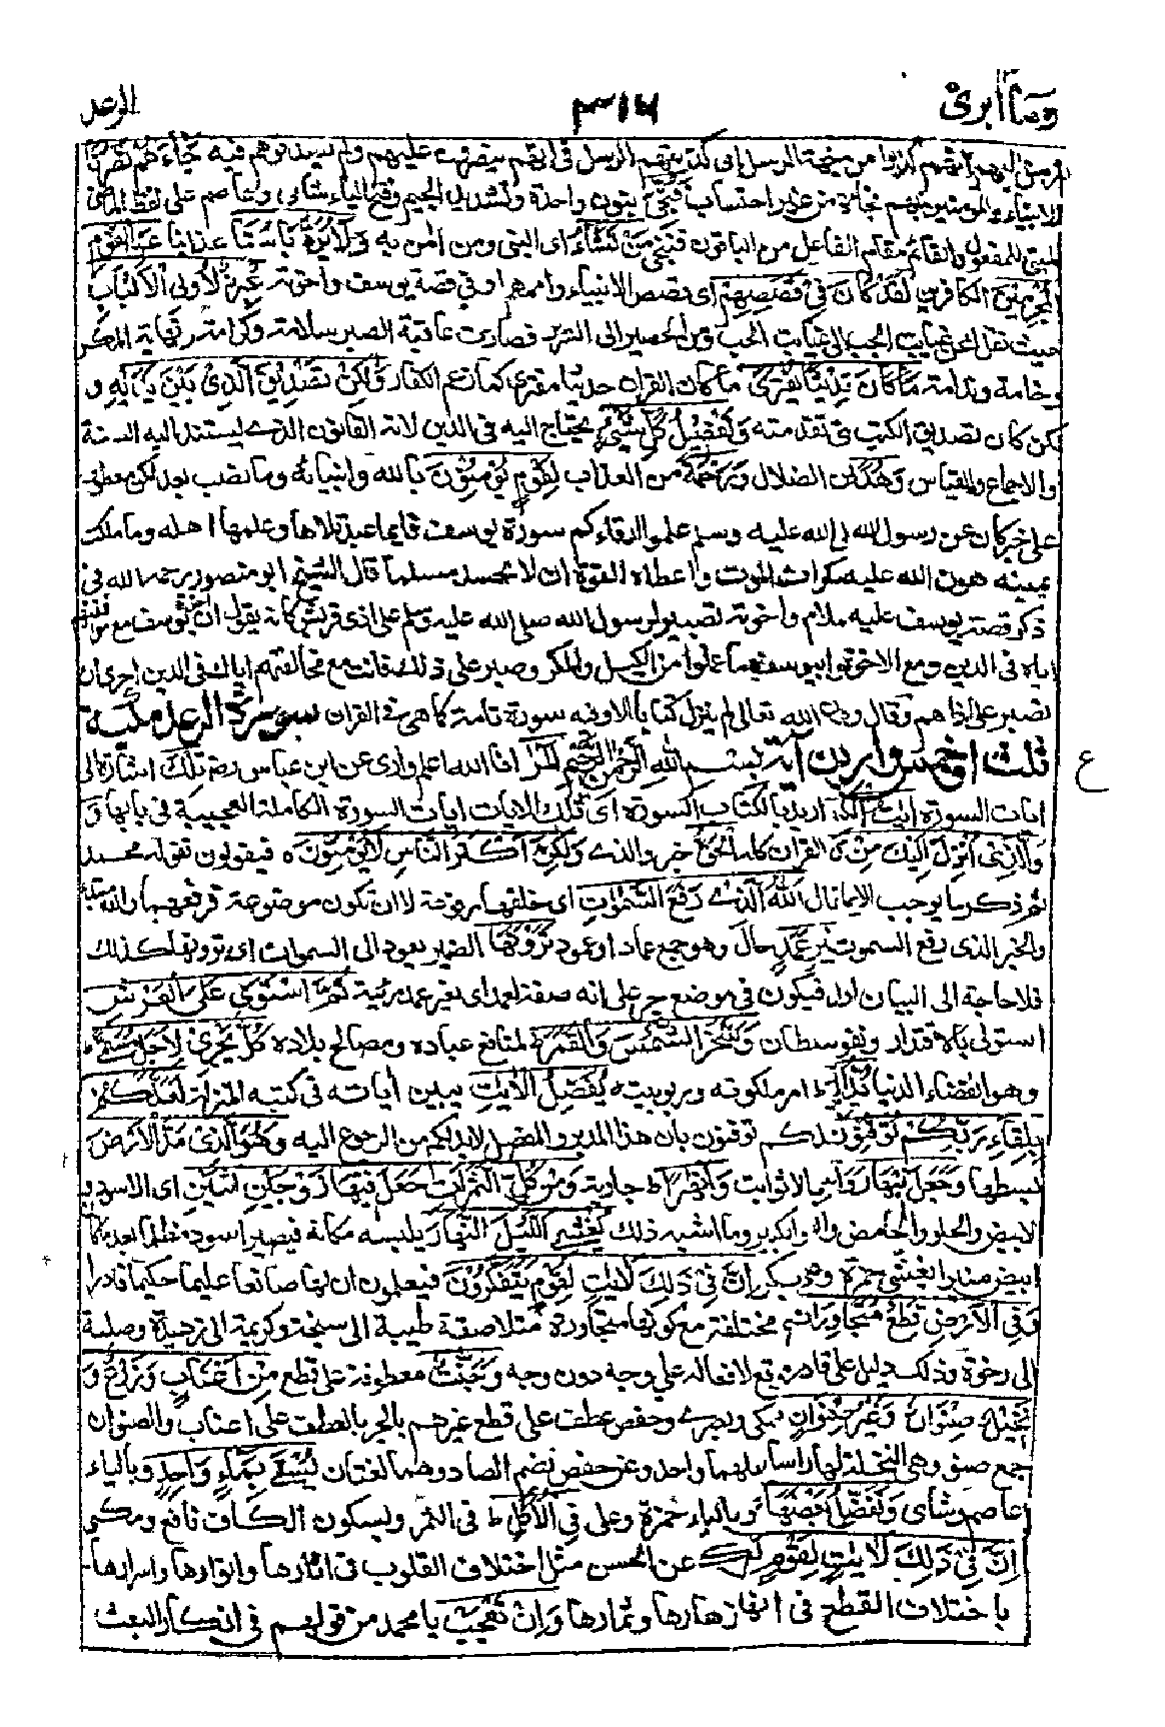 وما ابرئ ٣١٦ الرعد
المرسل اليهم انهم كذبوا من جهة الرسل اى كذبتهم الرسل فى انهم ينصرون عليهم ولم يصدقوهم فيه جَاءَهُمْ نَصْرُنَا
للانبياء والمؤمنين بهم فجاءة من غير احتساب فَنُجِّىَ بنون واحدة وتشديد الجيم وفتح الياء شامى وعاصم على لفظ الماضى
المبنى للمفعول والقائم مقام الفاعل من الباقون فننجى مَنْ نَشَاءُ اى النبى ومن امن به وَلَا يُرَدُّ بَأْسُنَا عذابنا عَنِ الْقَوْمِ
الْمُجْرِمِينَ الكافرين لَقَدْ كَانَ فِىْ قَصَصِهِمْ اى قصص الانبياء واممهم او فى قصة يوسف واخوته عِبْرَةٌ لِأُولِى الْأَلْبَابِ
حيث نقل من غيابت الجب الى غيابت الحب ومن الحصير الى السرير فصارت عاقبة الصبر سلامة وكرامة ونهاية المكر
وخامة وندامة مَا كَانَ حَدِيْثًا يُفْتَرٰى ما كان القران حديثا مفترى كما زعم الكفار وَلٰكِنْ تَصْدِيْقَ الَّذِىْ بَيْنَ يَدَيْهِ و
لكن كان تصديق الكتب التى تقدمته وَتَفْصِيْلَ كُلِّ شَىْءٍ يحتاج اليه فى الدين لانه القانون الذى يستند اليه السنة
والاجماع والقياس وَهُدًى من الضلال وَرَحْمَةً من العذاب لِقَوْمٍ يُؤْمِنُوْنَ بالله وانبيائه وما نصب بعد لكن معطوف
على خبر كان عن رسول الله صلى الله عليه وسلم علموا ارقاءكم سورة يوسف فايما عبد تلاها وعلمها اهله وما ملكت
يمينه هون الله عليه سكرات الموت واعطاه القوة ان لا يحسد مسلما قال الشيخ ابو منصور رحمه الله فى
ذكر قصة يوسف عليه السلام واخوته تصبير لرسول الله صلى الله عليه وسلم على اذى قريش كانه يقول ان اخوة يوسف مع موافقتهم
اياه فى الدين ومع الاخوة عملوا بيوسف ما عملوا من الكيد والمكر وصبر على ذلك فانت مع مخالفتهم اياك فى الدين احرى ان
تصبر على اذاهم وقال وهب ان الله تعالى لم ينزل كتابا الا وفيه سورة يوسف تامة كما هى فى القران سورة الرعد مكية
ثلث او خمس واربعون اية بسم الله الرحمن الرحيم الٓمّٓرٰ انا الله اعلم وارى عن ابن عباس رضـ تِلْكَ اشارة الى
ايات السورة اٰيٰتُ الْكِتٰبِ اريد بالكتاب السورة اى تلك الايات ايات السورة الكاملة العجيبة فى بابها وَ
وَالَّذِىْ اُنْزِلَ اِلَيْكَ مِنْ رَبِّكَ القران كله الْحَقُّ خبر والذى وَلٰكِنَّ اَكْثَرَ النَّاسِ لَا يُؤْمِنُوْنَ ه فيقولون تقوله محمد
ثم ذكر ما يوجب الايمان فقال اَللّٰهُ الَّذِىْ رَفَعَ السَّمٰوٰتِ اى خلقها مرفوعة لا ان تكون موضوعة فرفعها والله مبتدأ
والخبر الذى رفع السموت بِغَيْرِ عَمَدٍ حال وهو جمع عماد او عمود تَرَوْنَهَا الضمير يعود الى السموات اى ترونها كذلك
فلا حاجة الى البيان اولعمد فيكون فى موضع جر على انه صفة لعمد اى بغير عمد مرئية ثُمَّ اسْتَوٰى عَلَى الْعَرْشِ
استولى بالاقتدار ونفوذ السلطان وَسَخَّرَ الشَّمْسَ وَالْقَمَرَ ط لمنافع عباده ومصالح بلاده كُلٌّ يَّجْرِىْ لِاَجَلٍ مُّسَمًّى ط
وهو انقضاء الدنيا يُدَبِّرُ الْاَمْرَ ط امر ملكوته وربوبيته يُفَصِّلُ الْاٰيٰتِ يبين اياته فى كتبه المنزلة لَعَلَّكُمْ
بِلِقَاءِ رَبِّكُمْ تُوْقِنُوْنَ لعلكم توقنون بان هذا المدبر والمفصل لا بد لكم من الرجوع اليه وَهُوَ الَّذِىْ مَدَّ الْاَرْضَ
بسطها وَجَعَلَ فِيْهَا رَوَاسِىَ جبالا ثوابت وَاَنْهٰرًا ط جارية وَمِنْ كُلِّ الثَّمَرٰتِ جَعَلَ فِيْهَا زَوْجَيْنِ اثْنَيْنِ اى الاسود و
الابيض والحلو والحامض والصغير والكبير وما اشبه ذلك يُغْشِى الَّيْلَ النَّهَارَ يلبسه مكانه فيصير اسود مظلما بعد ما كان
ابيض منيرا يغشى حمزة وعلى وابوبكر اِنَّ فِىْ ذٰلِكَ لَاٰيٰتٍ لِّقَوْمٍ يَّتَفَكَّرُوْنَ فيعلمون ان لها صانعا عليما حكيما قادرا
وَفِى الْاَرْضِ قِطَعٌ مُّتَجٰوِرٰتٌ بقاع مختلفة مع كونها متجاورة متلاصقة طيبة الى سبخة وكريمة الى زهيدة وصلبة
الى رخوة وذلك دليل على قادر موقع لافعاله على وجه دون وجه وَجَنّٰتٌ معطوفة على قطع مِنْ اَعْنَابٍ وَزَرْعٌ وَ
نَخِيْلٌ صِنْوَانٌ وَغَيْرُ صِنْوَانٍ مكى وبصرى وحفص عطف على قطع غيرهم بالجر بالعطف على اعناب والصنوان
جمع صنو وهى النخلة لها راسان واصلهما واحد وعن حفص بضم الصاد وهما لغتان يُسْقٰى بِمَاءٍ وَاحِدٍ وبالياء
عاصم وشامى وَنُفَضِّلُ بَعْضَهَا وبالياء حمزة وعلى فِى الْاُكُلِ ط فى الثمر وبسكون الكاف نافع ومكى
اِنَّ فِىْ ذٰلِكَ لَاٰيٰتٍ لِّقَوْمٍ عن الحسن مثل اختلاف القلوب فى اثارها وانوارها واسرارها
باختلاف القطع فى انهارها وازهارها وثمارها وَاِنْ تَعْجَبْ يا محمد من قولهم فى انكار البعث
ع